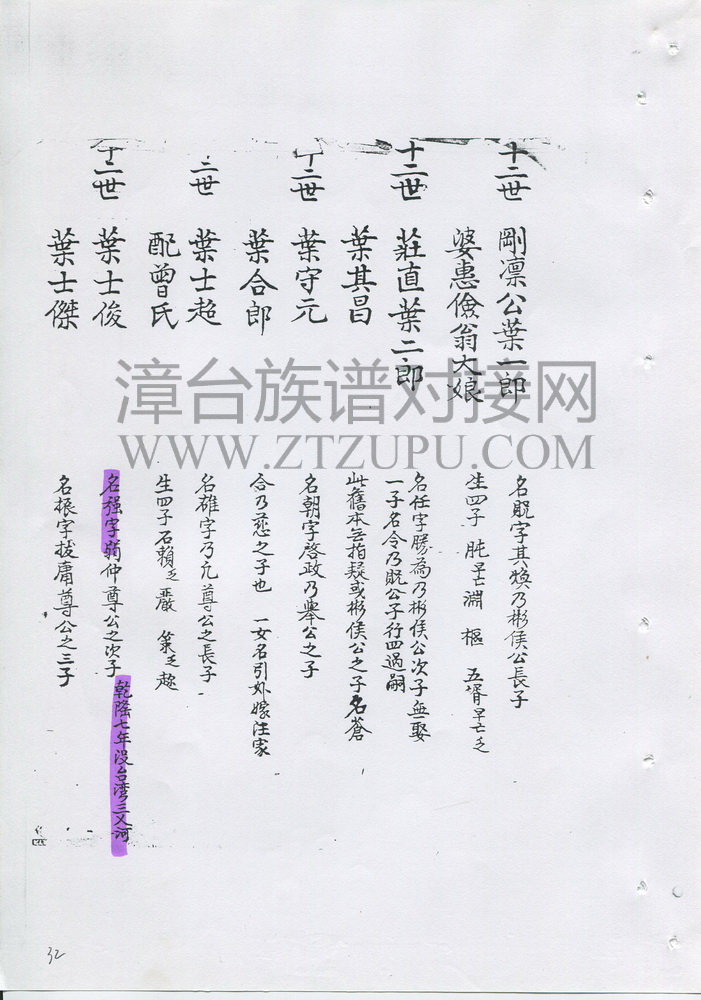 十二世 剛凛公葉一郎 名脫字其煥乃彬侯公長子
婆惠儉翁大娘 生四子 肫早亡 淵 樞 五壻早亡乏
十二世 莊直葉二郎 名任字勝為乃彬侯公次子無娶
一子名令乃脫公子行四過嗣
葉其昌 此舊本無指疑或彬侯公之子名蒼
十二世 葉守元 名朝字啓政乃舉公之子
葉合郎 合乃慈之子也 一女名引外嫁汪家
二世 葉士超 名雄字乃元尊公之長子
配曾氏 生四子 石賴乏 嚴 策乏 趂
十二世 葉士俊 名强字弱仲尊公之次子 乾隆七年没台湾三叉河
葉士傑 名振字拔庸尊公之三子
漳台族谱对接网
WWW.ZTZUPU.COM
32